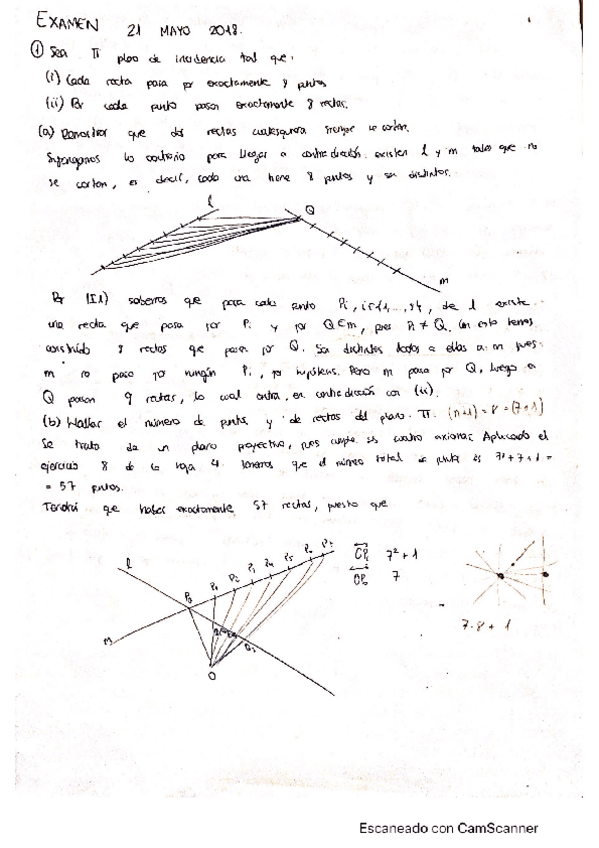 EXAMEN 21 MAYO 2018.
① Sea π plano de incidencia tal que:
(i) Cada recta pasa por exactamente 8 puntos
(ii) Por cada punto pasan exactamente 8 rectas.
(a) Demostrar que dos rectas cualesquiera siempre se cortan.
Supongamos lo contrario para llegar a contradicción: existen l y m tales que no
se cortan, es decir, cada una tiene 8 puntos y son distintos.
l
Q
m
Por (I1) sabemos que para cada punto Pi, de l existe
una recta que pasa por Pi y por Q∈m, pues Pi ≠ Q. Con esto hemos
construido 8 rectas que pasan por Q. Son distintas todas ellas a m pues
m no pasa por ningún Pi, por hipótesis. Pero m pasa por Q, luego a
Q pasan 9 rectas, lo cual entra en contradicción con (ii).
(b) Hallar el número de puntos y de rectas del plano π. (n+1) = 8 = (7+1)
Se trata de un plano proyectivo, pues cumple sus cuatro axiomas. Aplicando el
ejercicio 8 de la hoja 4 tenemos que el número total de puntos es 7²+7+1 =
= 57 puntos.
Tendrá que haber exactamente 57 rectas, puesto que
l
P1 P2 P3 P4 P5 P6 P7
P0
m
O
OP1 7²+1
OP0 7
7·8+1
Escaneado con CamScanner